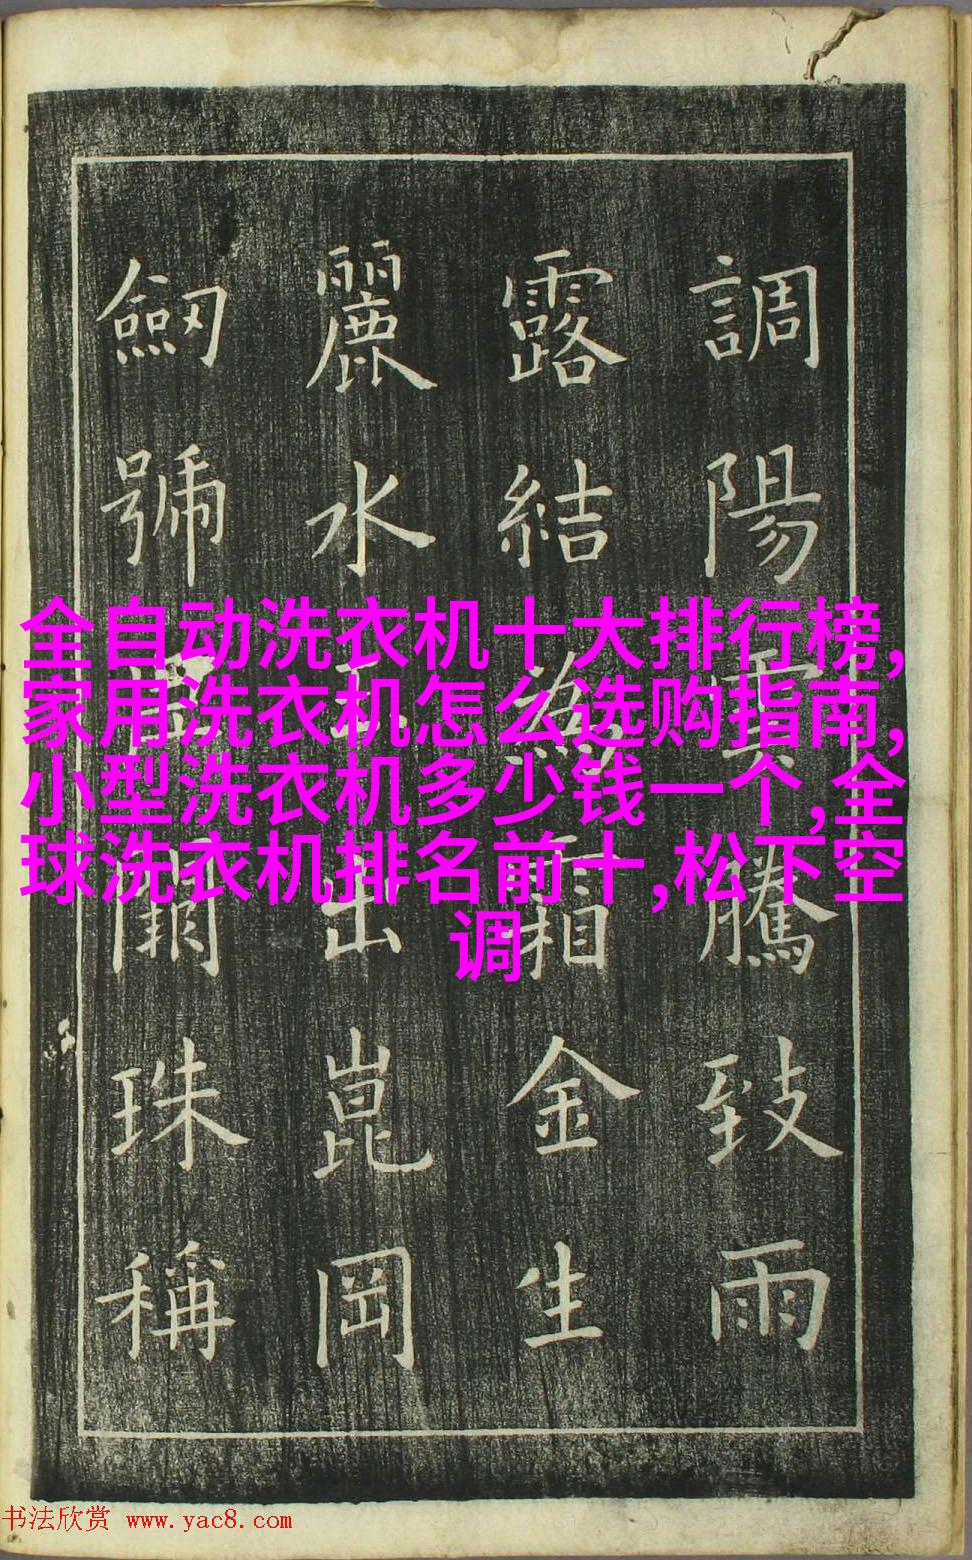 調陽騰致雨
露結爲霜金生
麗水出崑岡
劒號闕珠稱
全自动洗衣机十大排行榜,
家用洗衣机怎么选购指南,
小型洗衣机多少钱一个,全
球洗衣机排名前十,松下空
调
书法欣赏 www.yac8.com